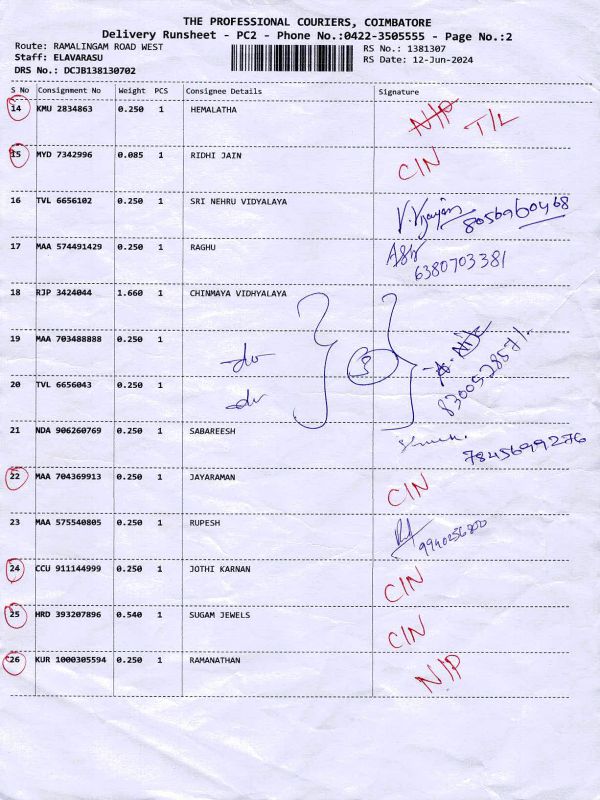 THE PROFESSIONAL COURIERS, COIMBATORE
Delivery Runsheet - PC2 - Phone No.:0422-3505555 - Page No.:2
Route: RAMALINGAM ROAD WEST
RS No.: 1381307
Staff: ELAVARASU
RS Date: 12-Jun-2024
DRS No.: DCJB138130702
S No Consignment No Weight PCS Consignee Details Signature
14 KMU 2834863 0.250 1 HEMALATHA N/P T/L
15 MYD 7342996 0.085 1 RIDHI JAIN C/N
16 TVL 6656102 0.250 1 SRI NEHRU VIDYALAYA 8056960468
17 MAA 574491429 0.250 1 RAGHU
6380703381
18 RJP 3424044 1.660 1 CHINMAYA VIDHYALAYA
19 MAA 703488888 0.250 1 -do
20 TVL 6656043 0.250 1 -do 3
21 NDA 906260769 0.250 1 SABAREESH 7845699276
22 MAA 704369913 0.250 1 JAYARAMAN C/N
23 MAA 575540805 0.250 1 RUPESH
24 CCU 911144999 0.250 1 JOTHI KARNAN C/N
25 HRD 393207896 0.540 1 SUGAM JEWELS C/N
26 KUR 1000305594 0.250 1 RAMANATHAN N/P